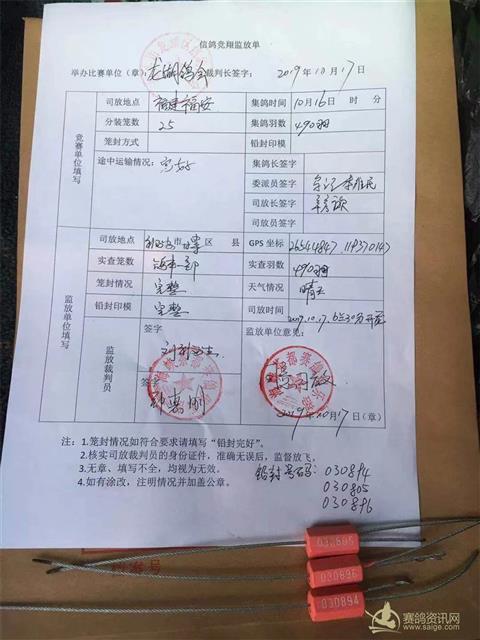 信鸽竞翔监放单
举办比赛单位（章）：龙湖鸽会 裁判长签字： 2019年10月17日
竞赛单位填写
司放地点 福建福安 集鸽时间 10月16日 时 分
分装笼数 25 集鸽羽数 490羽
笼封方式 铅封印模
途中运输情况：完好 集鸽长签字
委派员签字
司放长签字
司放员签字
监放单位填写
司放地点 市 区 县 GPS 坐标
实查笼数 实查羽数 490羽
笼封情况 完整 天气情况 晴天
铅封印模 完整 司放时间 2019.10.17.6点30分开笼
监放裁判员 签字 监放单位意见：
签字
同放
2019年10月17日（章）
注：1.笼封情况如符合要求请填写“铅封完好”。
2.核实司放裁判员的身份证件，准确无误后，监督放飞。
3.无章、填写不全，均视为无效。
4.如有涂改，注明情况并加盖公章。
铅封号码：030894
030805
030896
030895
030896
030894
赛鸽资讯网
www.saige.com